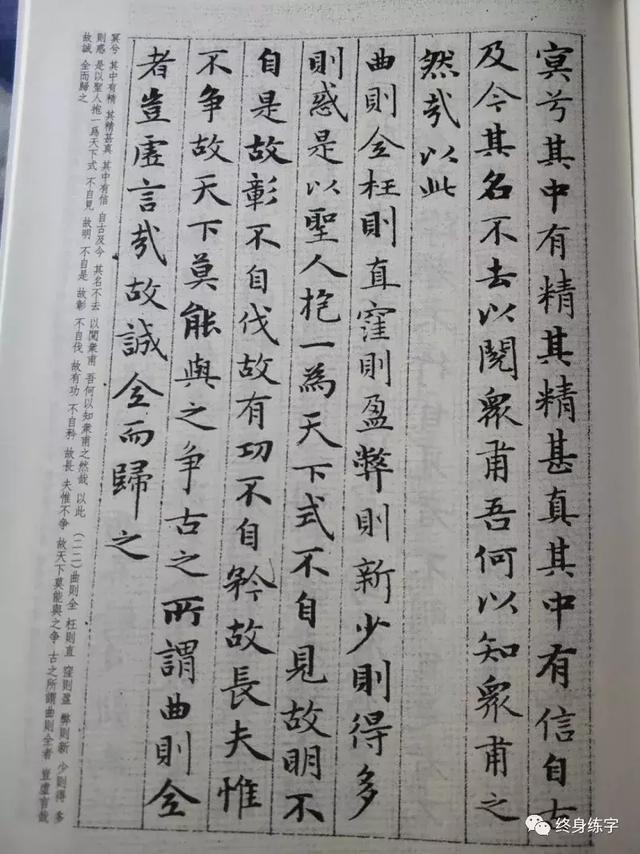 冥兮其中有精其精甚真其中有信自古
及今其名不去以閱衆甫吾何以知衆甫之
然哉以此
曲則全枉則直窪則盈弊則新少則得多
則惑是以聖人抱一為天下式不自見故明不
自是故彰不自伐故有功不自矜故長夫惟
不争故天下莫能與之争古之所謂曲則全
者豈虛言哉故誠全而歸之
冥兮 其中有精 其精甚真 其中有信 自古及今 其名不去 以閱衆甫 吾何以知衆甫之然哉 以此 (二二)曲則全 枉則直 窪則盈 弊則新 少則得 多
則惑 是以聖人抱一爲天下式 不自見 故明 不自是 故彰 不自伐 故有功 不自矜 故長 夫惟不争 故天下莫能與之争 古之所謂曲則全者 豈虛言哉
故誠 全而歸之
终身练字